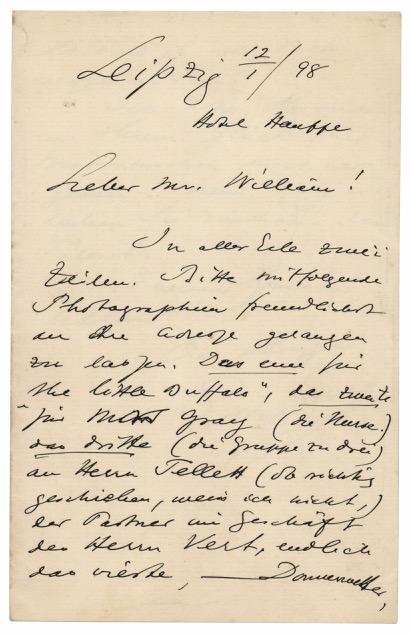 Leipzig 12/1/98
Hotel Hauffe
Lieber Mr. William!
In aller Eile zwei
Zeilen. Bitte mitfolgende
Photographien freundlichst
an ihre Adresse gelangen
zu lassen. Das eine für
"the little Buffalo", das zweite
"für Gray (die Nurse.)
das dritte (die Gruppe zu drei)
an Herrn Tellett (ob richtig
geschrieben, weiss ich nicht,)
der Partner im Geschäft
des Herrn Vert, endlich
das vierte, — Donnerwetter,